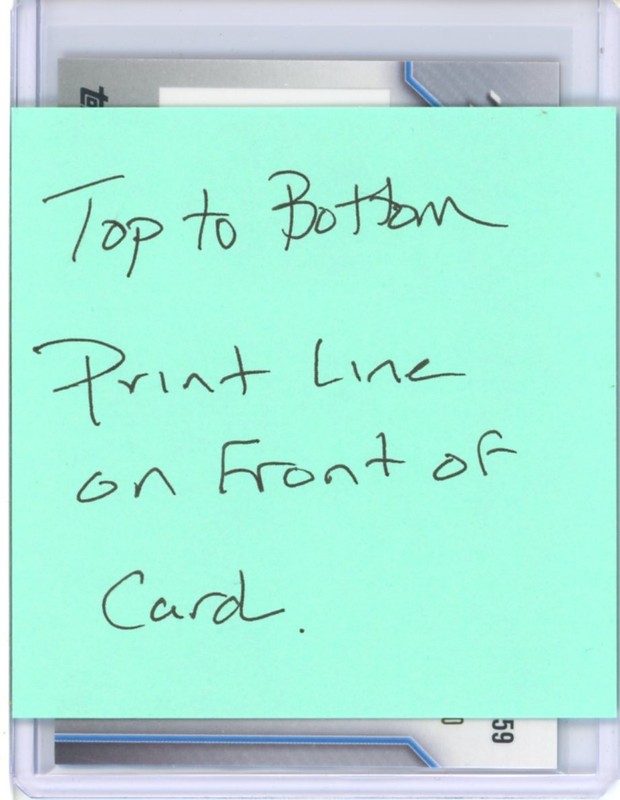 Top to Bottom
Print Line
on Front of
Card.
59